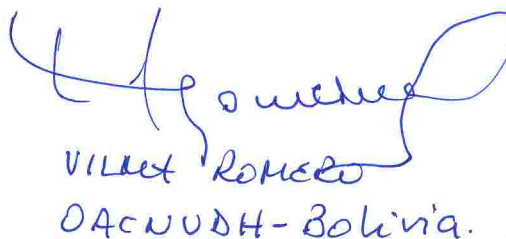 VILMA ROMERO
OACNUDH-Bolivia.